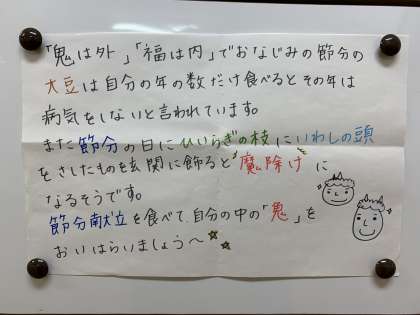 「鬼は外」「福は内」でおなじみの節分の
大豆は自分の年の数だけ食べるとその年は
病気をしないと言われています。
また節分の日にひいらぎの枝にいわしの頭
をさしたものを玄関に飾ると魔除けに
なるそうです。
節分献立を食べて、自分の中の「鬼」を
おいはらいましょう〜